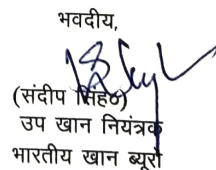 भवदीय,
(संदीप सिंह)
उप खान नियंत्रक
भारतीय खान ब्यूरो